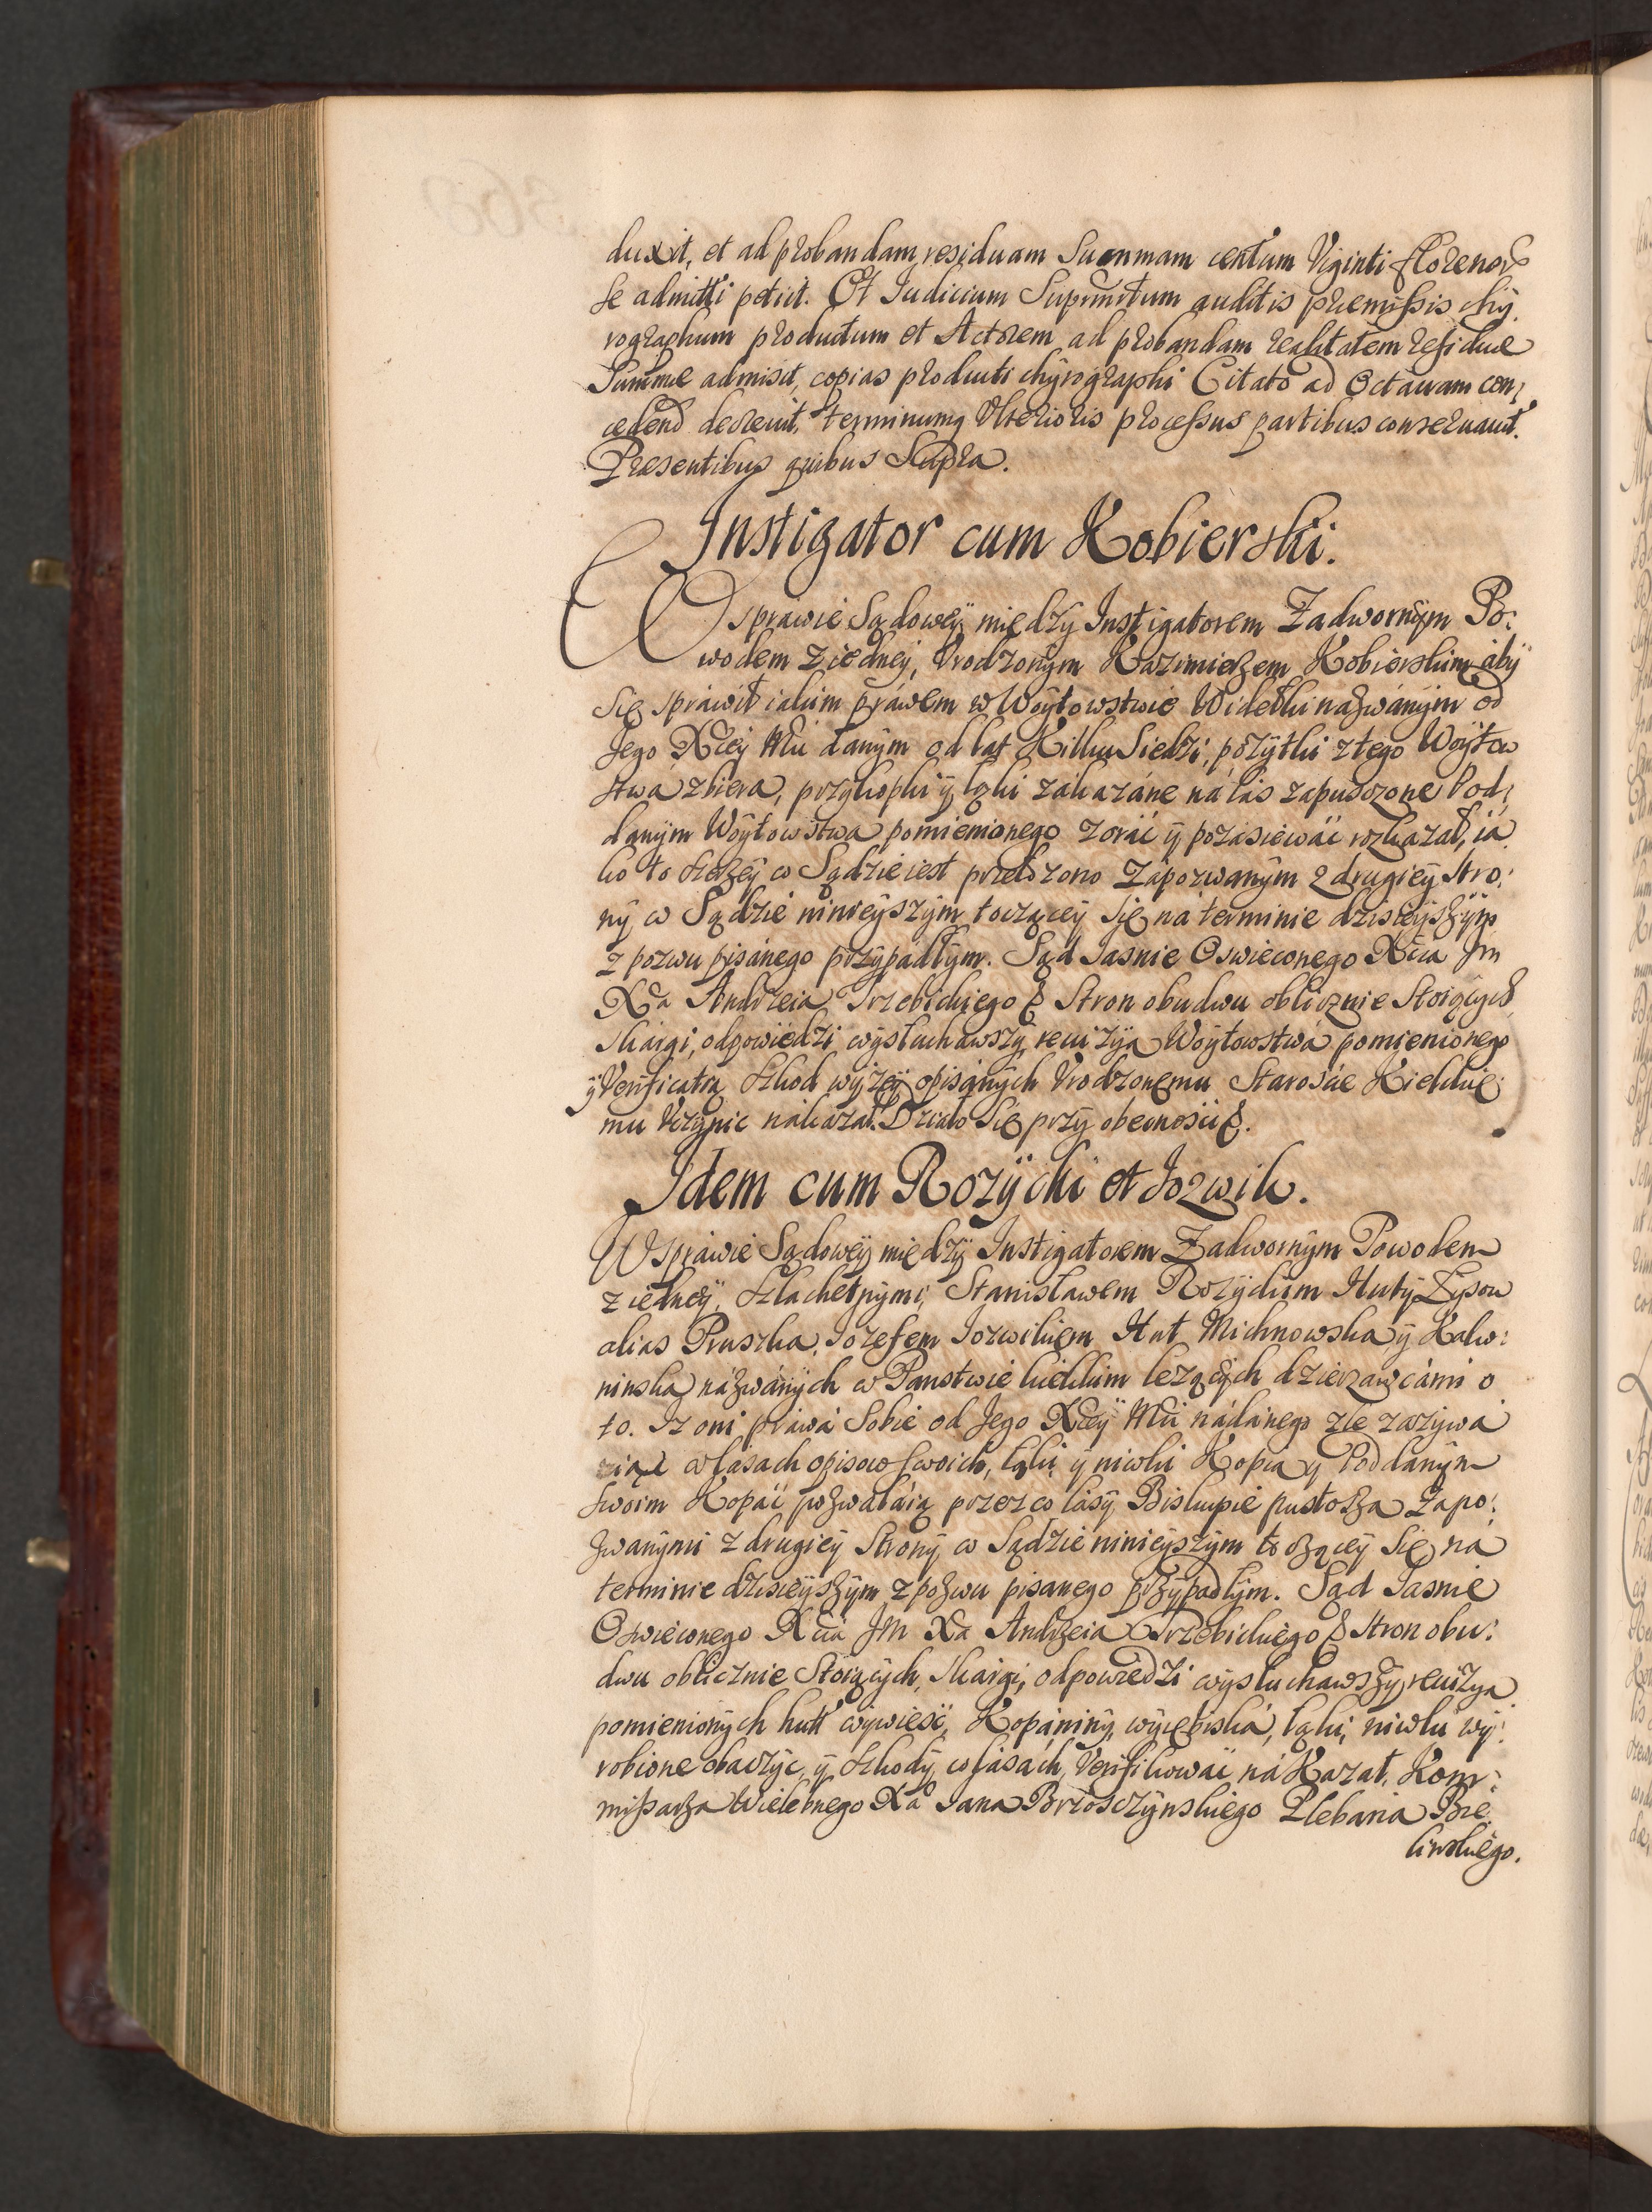 duxit, et ad probandam residuam Summam centum Viginti florenor
se admitti petiit. Et Judicium Suprm̃tum auditis præmissis chÿ,
rographum productum et Actorem ad probandam realitatem residuæ
Summæ admisit, copias producti chÿrographi Citato ad Octauam con,
cedend decreuit, terminumq Vlterioris processus partibus conseruauit.
Præsentibus quibus Supra.
Instigator cum Kobierski.
W sprawie Sądoweÿ międzÿ Instigatorem Zadwornÿm Po:
wodem z iedneÿ, Vrodzonÿm Kazimierzem Kobierskim abÿ
się sprawił iakim prawem w Woÿtowstwie Widełki nazwanÿm od
Jego Xceÿ Mci danÿm od lat Kilku Siedzi, pożÿtki z tego Woÿtow
stwa zbiera, przÿkopki ÿ łąki zakazáne ná las zapusczone Pod,
danÿm Woÿtowstwa pomienionego zoráć ÿ pozasiewáć rozkazał, iá
ko to szerzeÿ w Sądzie iest przełozono Zapozwanÿm z drugieÿ Stro:
nÿ w Sądzie ninieÿszÿm tocząceÿ się ná terminie dzisieÿszÿm
z pozwu pisánego przÿpadłÿm. Sąd Jasnie Oswieconego Xcia Jm
Xa Andrzeia Trzebickiego & Stron obudwu oblicznie Stoiących
Skárgi, odpowiedzi wÿsłuchawszÿ, reuizÿą Woÿtowstwá pomienionego
ÿ Verificatią szkod wÿżeÿ opisánÿch Vrodzonemu Staroscie Kieleckie:
mu Vczÿnic nákazał. Działo Się przÿ obecnosci &.
Idem cum Rozÿcki et Jozwik.
W sprawie Sądoweÿ międzÿ Instigatorem Zadwornÿm Powodem
z iedneÿ, Szlachetnÿmi, Stanisławem Rozÿckim Hutÿ Łÿsow
alias Pruszka, Jozefem Jozwikiem Hut Michnowska ÿ Kalw:
ninska názwánÿch w Panstwie kieleckim lezącÿch dzierzawcámi o
to. Iż oni práwá Sobie od Jego Xceÿ Mci nádánego źle zazÿwa
iąc w lasach opisow swoich, łąki ÿ niwki Kopią ÿ Poddánÿm
swoim Kopáć pozwaláią przez co lasÿ Biskupie pustoszą Zapo:
zwanÿmi z drugieÿ Stronÿ w Sądzie ninieÿszÿm toczącey Się ná
terminie dzisieÿszÿm z pozwu pisanego przÿpadłÿm. Sąd Jasnie
Oswieconego Xcia Jm Xa Andrzeia Trzebickiego & Stron obu:
dwu oblicznie Stoiącÿch, Skárgi, odpowiedzi wÿsłuchawszÿ, reuizÿą
pomienionÿch hutt wÿwieść, Kopáninÿ, wÿcębiska, łąki, niwki wÿ:
robione obaczÿć, ÿ szkodÿ w lasách, Verifikowáć ná Kazał, Kom:
missarza Wielebnego Xa Jana Brzosczÿnskiego Plebana Bie
linskiego.